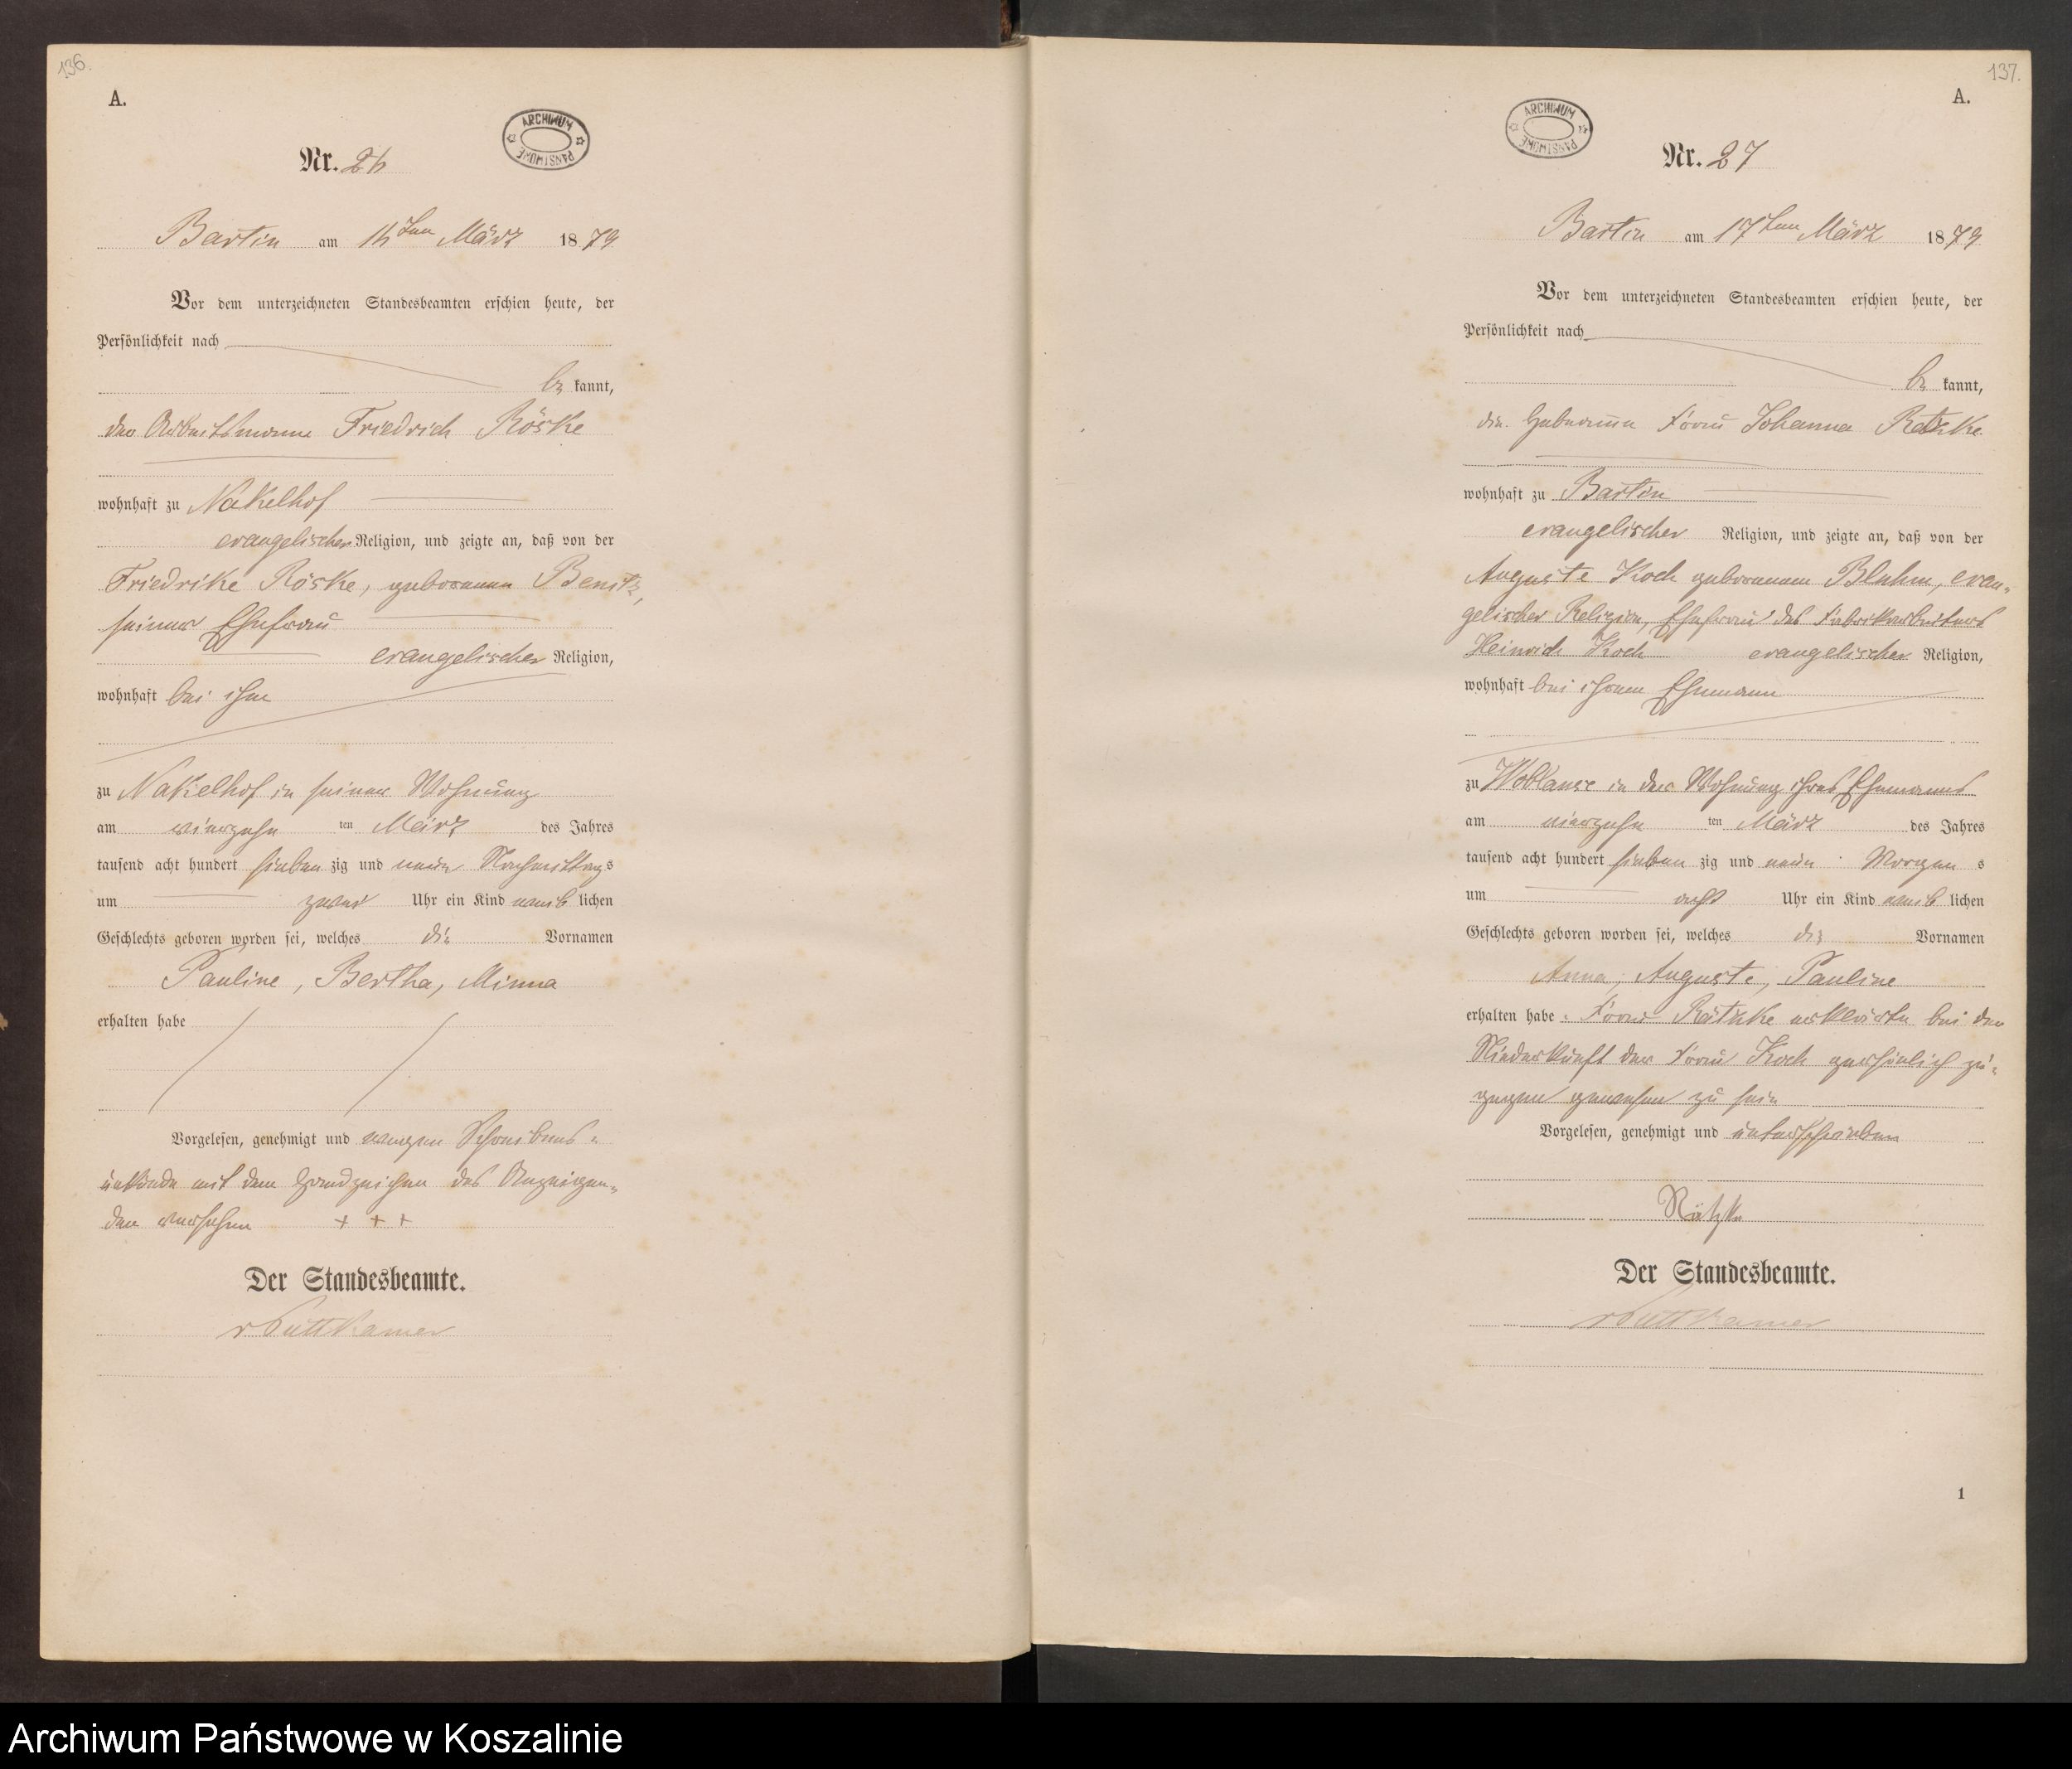 136.
A.
ARCHIWUM PAŃSTWOWE
Nr. 26
Bartin am 16ten März 1879
Vor dem unterzeichneten Standesbeamten erschien heute, der
Persönlichkeit nach
be kannt,
der Arbeitsmann Friedrich Röske
wohnhaft zu Nakelhof
evangelischer Religion, und zeigte an, daß von der
Friedrike Röske, geborenen Bemitz,
seiner Ehefrau
evangelischer Religion,
wohnhaft bei ihm
zu Nakelhof in seiner Wohnung
am vierzehn ten März des Jahres
tausend acht hundert sieben zig und neun Nachmittags
um zwei Uhr ein Kind weib lichen
Geschlechts geboren worden sei, welches die Vornamen
Pauline, Bertha, Minna
erhalten habe
Vorgelesen, genehmigt und wegen Schreibens-
unkunde mit dem Handzeichen des Anzeigen-
den versehen + + +
Der Standesbeamte.
v Puttkamer
137.
A.
ARCHIWUM PAŃSTWOWE
Nr. 27
Bartin am 17ten März 1879
Vor dem unterzeichneten Standesbeamten erschien heute, der
Persönlichkeit nach
be kannt,
die Hebamme Frau Johanna Rätzke
wohnhaft zu Bartin
evangelischer Religion, und zeigte an, daß von der
Auguste Koch geborenen Bluhm, evan-
gelischer Religion, Ehefrau des Fabrikarbeiters
Heinrich Koch evangelischer Religion,
wohnhaft bei ihrem Ehemann
zu Woblanse in der Wohnung ihres Ehemanns
am vierzehn ten März des Jahres
tausend acht hundert sieben zig und neun Morgen s
um acht Uhr ein Kind weib lichen
Geschlechts geboren worden sei, welches die Vornamen
Anna, Auguste, Pauline
erhalten habe. Frau Rätzke erklärte bei der
Niederkunft der Frau Koch persönlich zu-
gegen gewesen zu sein
Vorgelesen, genehmigt und unterschrieben
Rätzke
Der Standesbeamte.
v Puttkamer
1
Archiwum Państwowe w Koszalinie